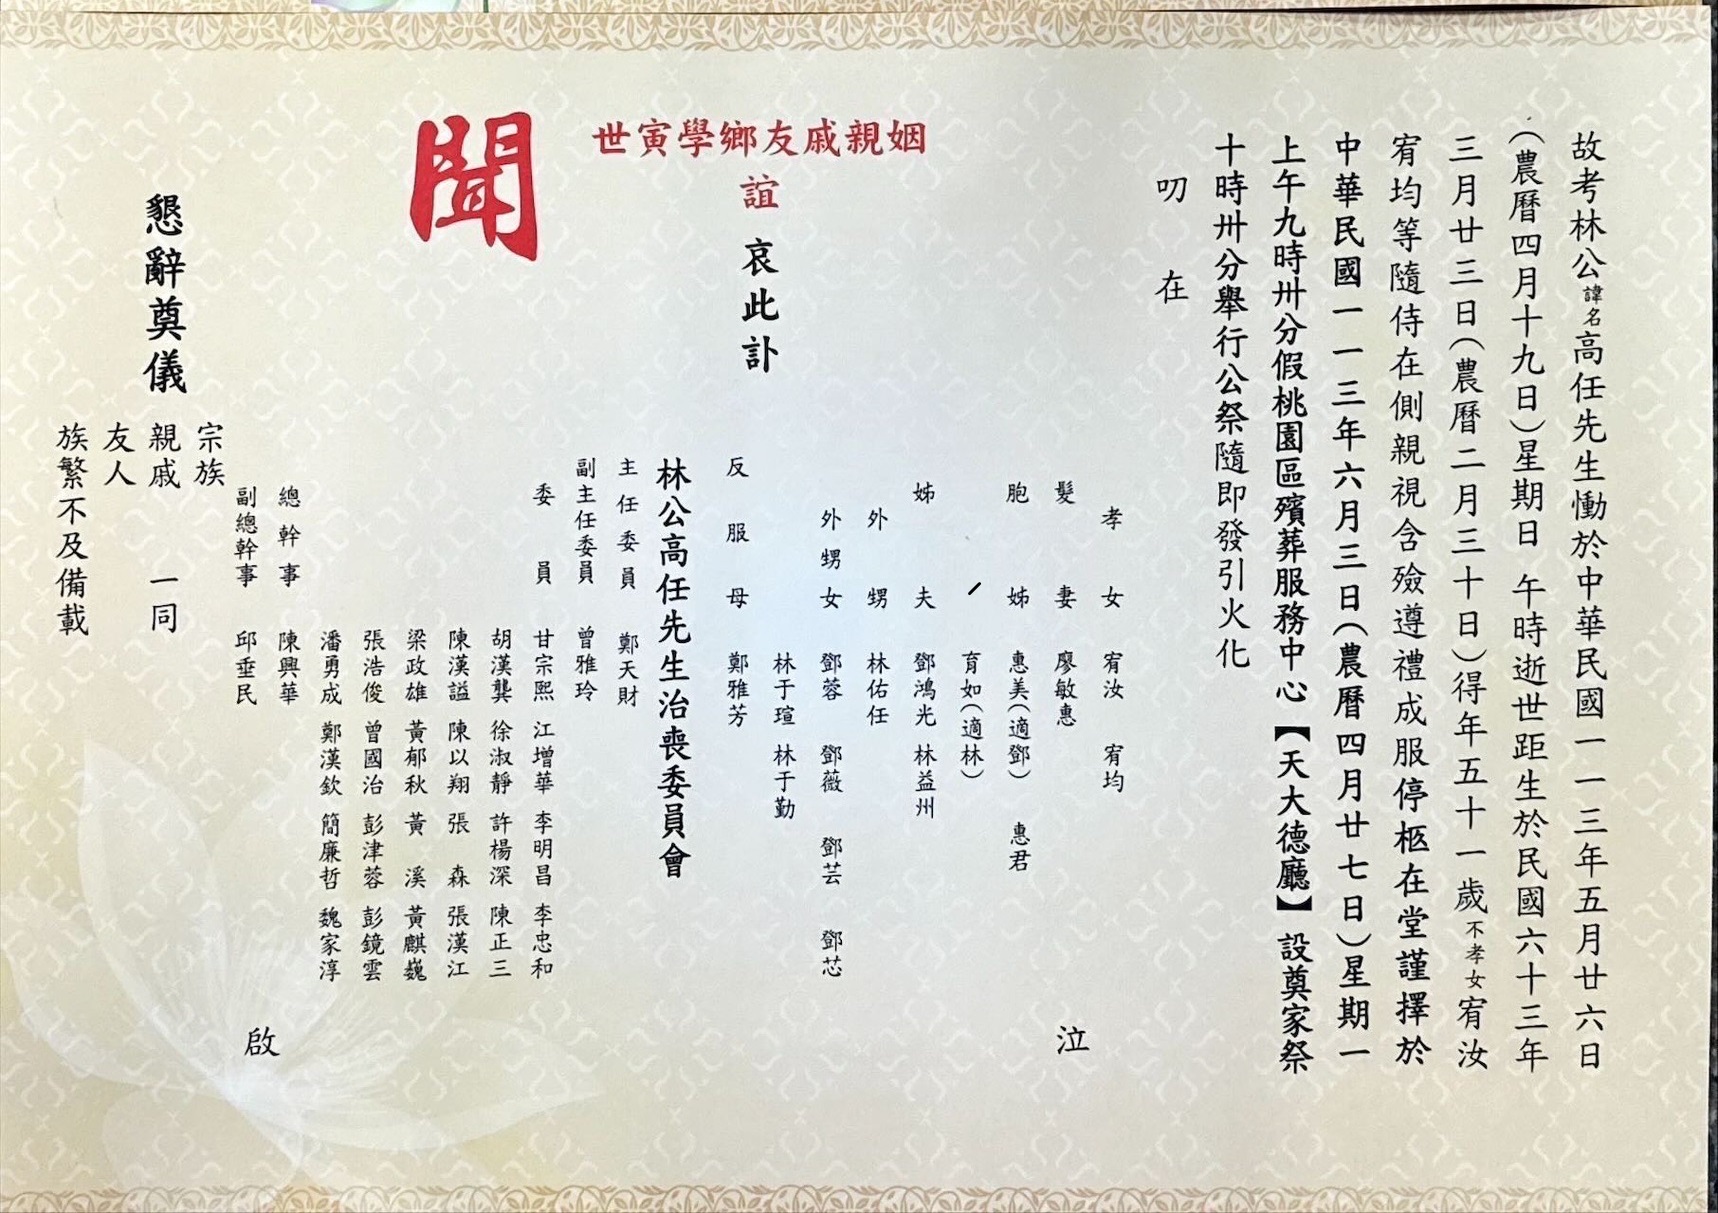 故考林公諱名高任先生慟於中華民國一一三年五月廿六日
(農曆四月十九日)星期日 午時逝世距生於民國六十三年
三月廿三日(農曆二月三十日)得年五十一歲不孝女宥汝
宥均等隨侍在側親視含殮遵禮成服停柩在堂謹擇於
中華民國一一三年六月三日(農曆四月廿七日)星期一
上午九時卅分假桃園區殯葬服務中心【天大德廳】設奠家祭
十時卅分舉行公祭隨即發引火化
叨 在
姻親戚友鄉學寅世
誼 哀此訃
聞
孝女 宥汝 宥均
髮妻 廖敏惠
胞姊 惠美(適鄧) 惠君
育如(適林)
姊夫 鄧鴻光 林益州
外甥 林佑任
外甥女 鄧蓉 鄧薇 鄧芸 鄧芯
林于瑄 林于勤
反服母 鄭雅芳
泣
林公高任先生治喪委員會
主任委員 鄭天財
副主任委員 曾雅玲
委員 甘宗熙 江增華 李明昌 李忠和
胡漢龑 徐淑靜 許楊深 陳正三
陳漢諡 陳以翔 張森 張漢江
梁政雄 黃郁秋 黃溪 黃麒巍
張浩俊 曾國治 彭津蓉 彭鏡雲
潘勇成 鄭漢欽 簡廉哲 魏家淳
總幹事 陳興華
副總幹事 邱垂民
啟
懇辭奠儀
宗族
親戚 一同
友人
族繁不及備載